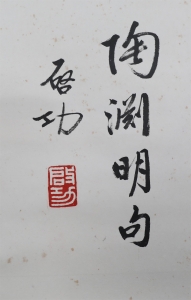 陶渊明句
启功
啟功